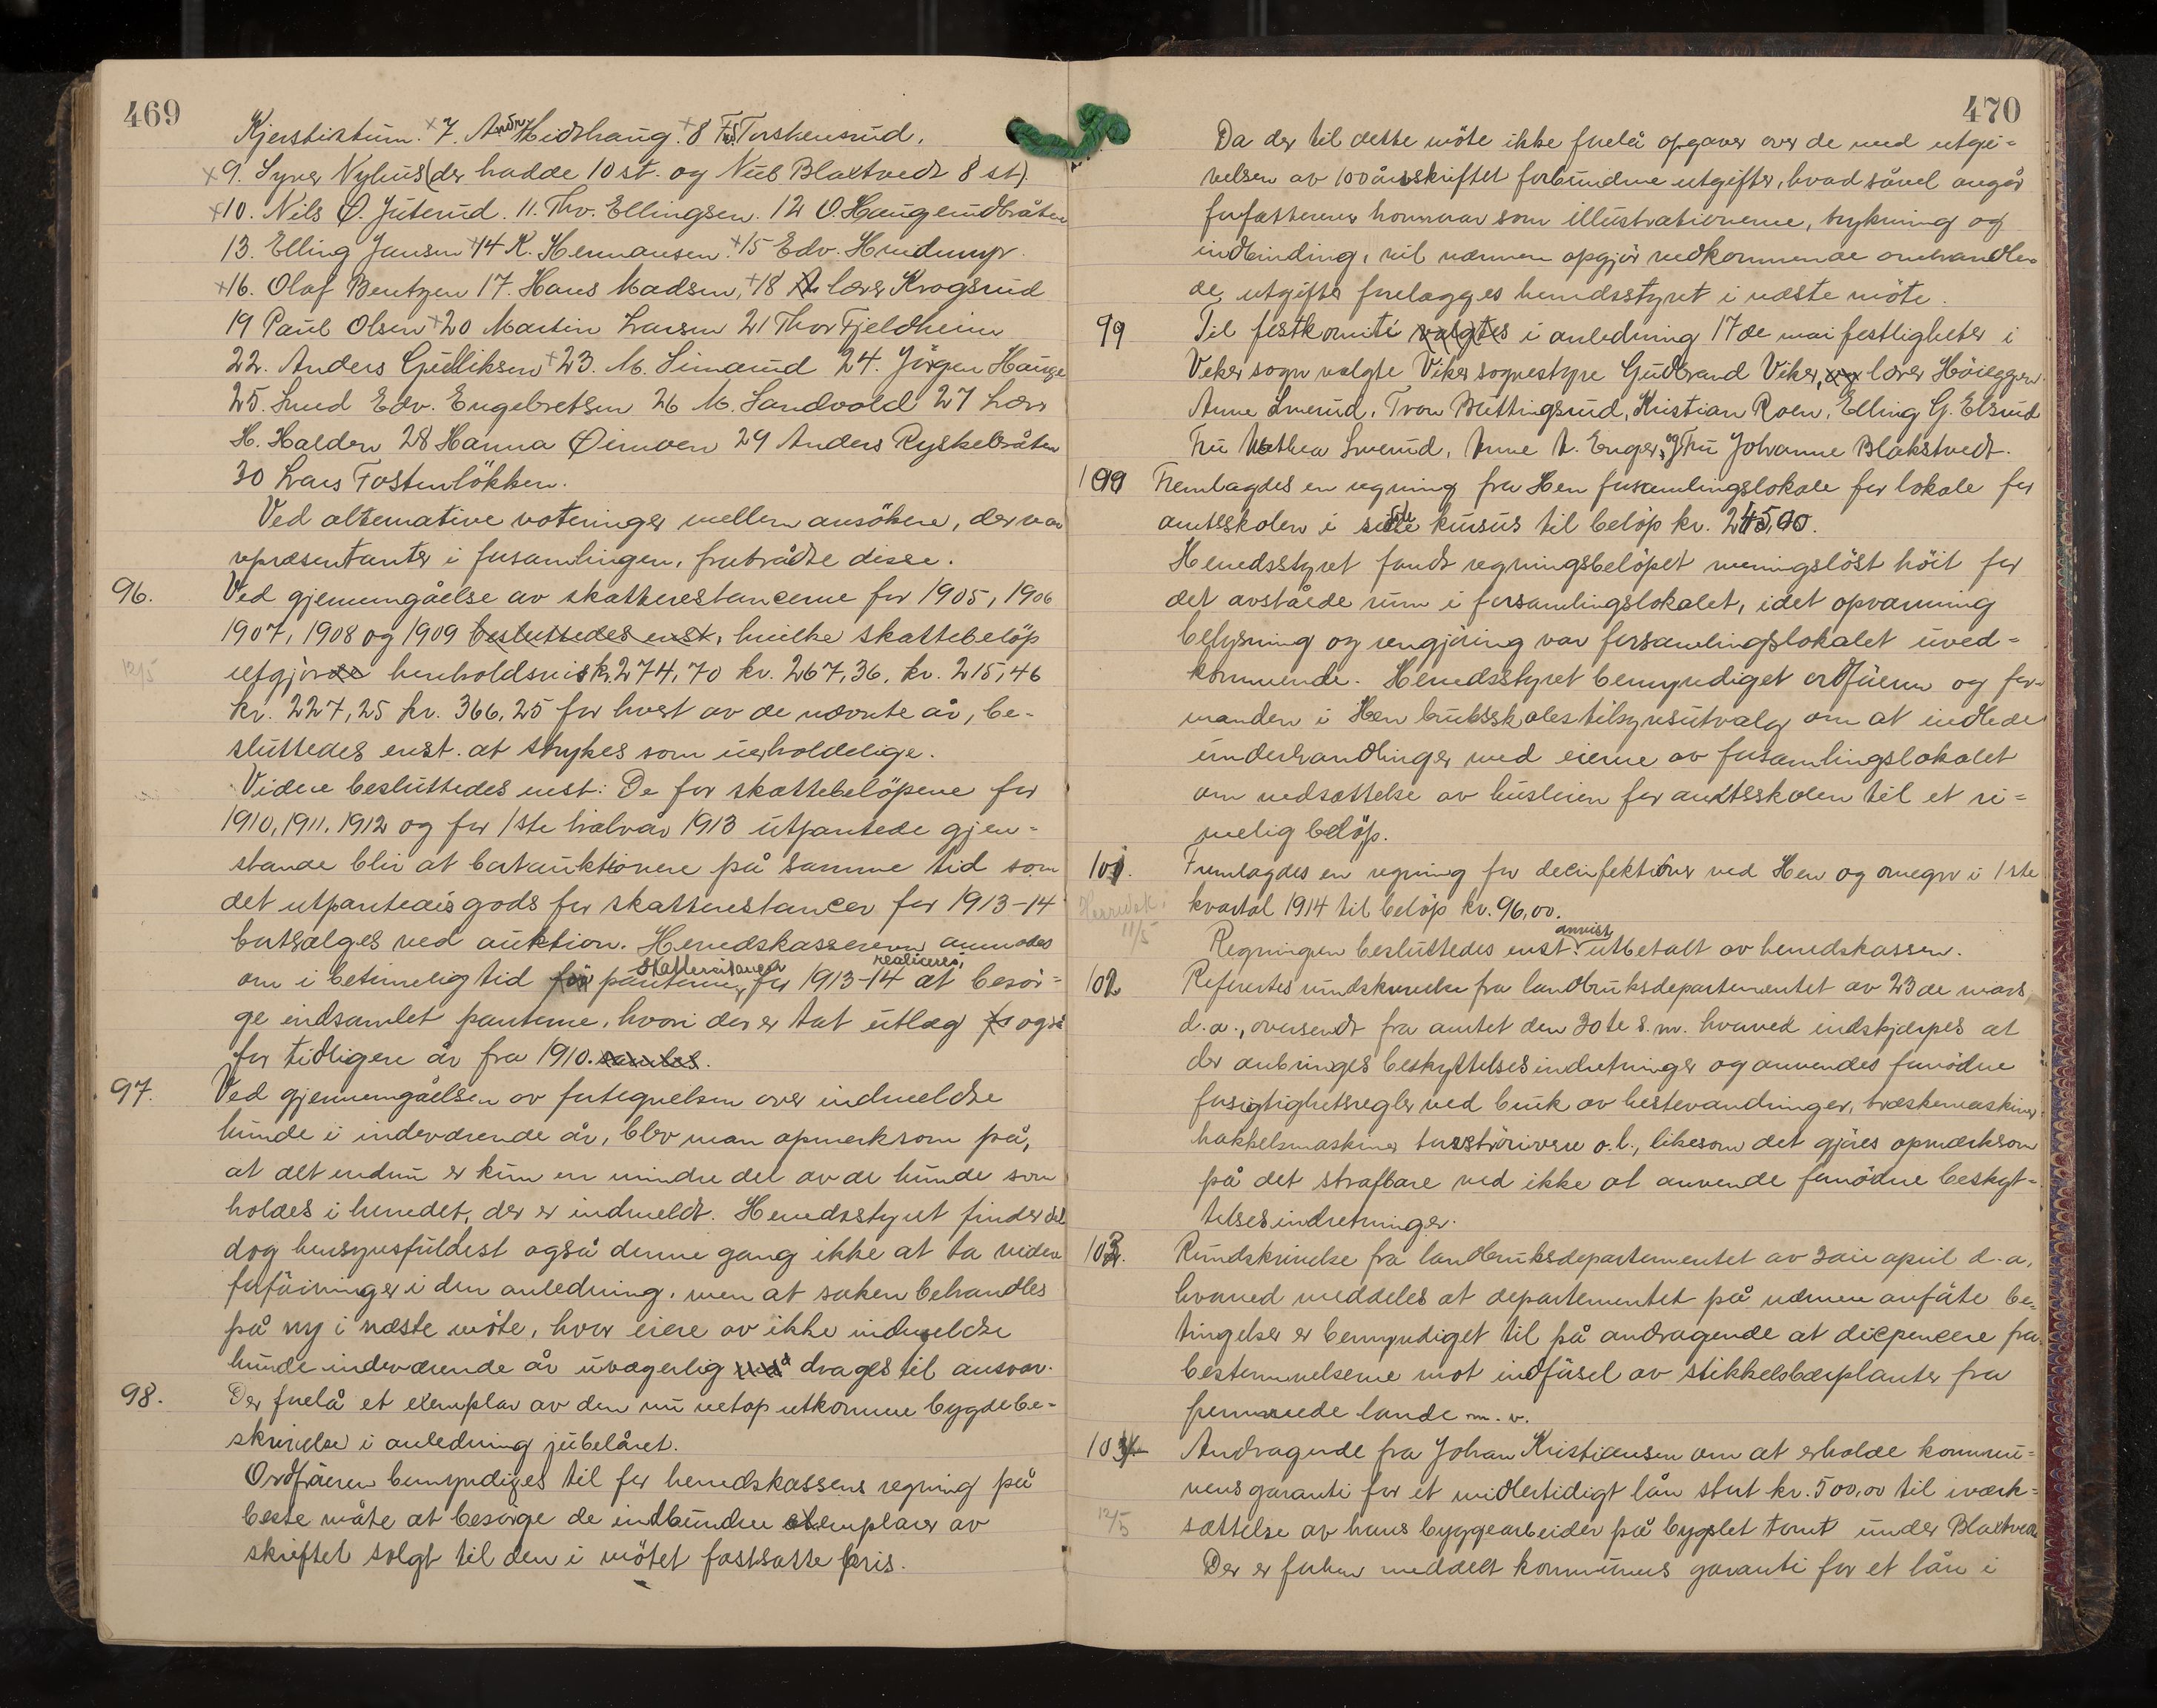 469
Kjerstixtum. x 7. Andr. Hidshaug. x 8 Fr. Torskensrud.
x 9. Syver Nyhus (der hadde 10 st. og Nub Blaxtvedt 8 st)
x 10. Nils O. Juterud. 11. Thv. Ellingsen. 12 O. Haugerudbråten
13. Elling Jansen x 14 K. Hermansen. x 15 Edv.
x 16. Olaf Bentzen 17. Hans Madsen, x 18 lærer Krogsrud
19 Paul Olsen x 20 Martin Larsen 21 Thor Fjeldheim
22. Anders Gulliksen x 23. M. Simarud 24. Jörgen Hauge
25. Smed Edv. Engebretsen 26 M. Sandvold 27 Lærer
H. Halden 28 Hanna Öimoen 29 Anders Ryskebråten
30 Lars Tostenlökken.
Ved alternative voteringer mellem ansökere, der var
repræsentanter i forsamlingen, fratrådte disse.
96. Ved gjennemgåelse av skatterestancerne for 1905, 1906
1907, 1908 og 1909 besluttedes enst., hvilke skattebelöp
12/5 utgjorde henholdsvis kr. 274,70 kr. 267,36, kr. 215,46
kr. 227,25 kr. 366,25 for hvert av de nævnte år, be-
sluttedes enst. at strykes som uerholdelige.
Videre besluttedes enst: De for skattebelöpene for
1910, 1911, 1912 og for 1ste halvår 1913 utpantede gjen-
stande blir at bortauktionere på samme tid som
det utpantedes gods for skatterestancer for 1913-14
bortsælges ved auktion. Herredskassereren anmodes
om i betimelig tid før panterne skatterestancer for 1913-14 realiceres, at besör-
ge indsamlet panterne, hvori der er tat utlæg også
for tidligere år fra 1910. samles.
97. Ved gjennemgåelsen av fortegnelsen over indmeldte
hunde i indeværende år, blev man opmerksom på,
at det endnu er kun en mindre del av de hunde som
holdes i herredet, der er indmeldt. Herredsstyret finder det
dog hensynsfuldest også denne gang ikke at ta videre
forføininger i den anledning, men at saken behandles
på ny i næste möte, hvor eiere av ikke indmeldte
hunde indeværende år uvægerlig må drages til ansvar.
98. Der forelå et exemplar av den nu netop utkomne bygdebe-
skrivelse i anledning jubelåret.
Ordføreren bemyndiges til for herredskassens regning på
beste måte at besörge de indbundne exemplarer av
skriftet solgt til den i mötet fastsatte pris.
470
Da der til dette möte ikke forelå opgaver over de med utgi-
velsen av 100 årsskriftet forbundne utgifter, hvad såvel angår
forfatterens honorar som illustrationerne, trykning og
indbinding, vil nærmere opgjör vedkommende omhandle-
de utgifter forelægges herredsstyret i næste möte.
99 Til festkomité valgtes i anledning 17de mai festligheter i
Viker sogn valgte Viker sognestyre Gudbrand Viker, og lærer Höieggen
Anne Smerud, Tron Buttingsrud, Kristian Roen, Elling G. Elsrud
Fru Mathea Smerud, Anne A. Enger, og Fru Johanne Blakstvedt.
199 Fremlagdes en regning fra Hen forsamlingslokale for lokale for
amtsskolen i siste kursus til belöp kr. 245,00.
Herredsstyret fandt regningsbelöpet meningslöst höit for
det avståede rum i forsamlingslokalet, idet opvarmning
belysning og rengjöring var forsamlingslokalet uved-
kommende. Herredsstyret bemyndiget ordføreren og for-
manden i Hen bruksskoles tilsynsutvalg om at indlede
underhandlinger med eierne av forsamlingslokalet
om nedsættelse av husleien for amtsskolen til et ri-
melig belöp.
101. Fremlagdes en regning for decinfektioner ved Hen og omegn i 1ste
Herredsk. 11/5 kvartal 1914 til belöp kr. 96,00.
Regningen besluttedes enst. anvist utbetalt av herredskassen.
102 Refertes rundskrivelse fra landbruksdepartementet av 23de mars
d.a., oversendt fra amtet den 30te s.m. hvorved indskjærpes at
der anbringes beskyttelsesindretninger og anvendes fornödne
forsigtighetsregler ved bruk av hestevandringer, træskemaskiner
hakkelsmaskiner o.l., likesom det gjöres opmærksom
på det strafbare ved ikke at anvende fornödne beskyt-
telsesindretninger.
103. Rundskrivelse fra landbruksdepartementet av 3die april d.a,
hvorved meddeles at departementet på nærmere anförte be-
tingelser er bemyndiget til på andragende at dicpencere fra
bestemmelserne mot indførsel av stikkelsbærplanter fra
fremmede lande m.v.
104 Andragende fra Johan Kristiansen om at erholde kommu-
nens garanti for et midlertidigt lån stort kr. 500,00 til iværk-
12/5 sættelse av hans byggearbeider på bygslet tomt under Blaxtvedt
Der er forhen meddelt kommunens garanti for et lån i